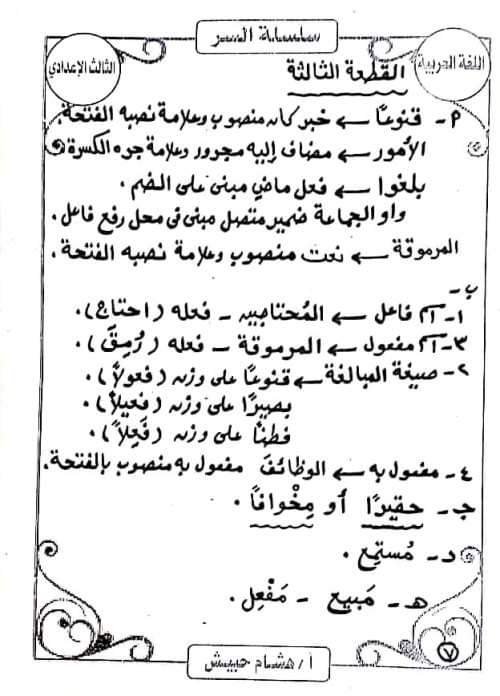 سلسلة السر
اللغة العربية
الثالث الإعدادي
القطعة الثالثة
٩- قنوعًا ← خبر كان منصوب وعلامة نصبه الفتحة.
الأمور ← مضاف إليه مجرور وعلامة جره الكسرة
بلغوا ← فعل ماضٍ مبنى على الضم.
واو الجماعة ضمير متصل مبنى فى محل رفع فاعل.
المرموقة ← نعت منصوب وعلامة نصبه الفتحة.
ب-
١- اسم فاعل ← المُحتاجين - فعله (احتاج).
٣- اسم مفعول ← المرموقة - فعله (رُمِقَ).
٢- صيغة المبالغة ← قنوعًا على وزن (فعولًا).
بصيرًا على وزن (فعيلًا).
فطنًا على وزن (فَعِلًا).
٤- مفعول به ← الوظائفَ مفعول به منصوب بالفتحة.
جـ- حقيرًا أو مِخْوافًا.
د- مُستمِع.
هـ- مَبيع - مَفْعِل.
٧
أ/ هشام حبيش